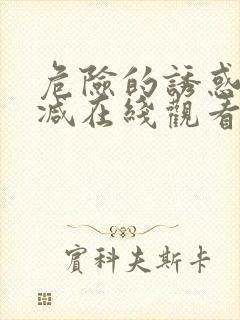 危險的誘惑
減在綫觀看
賓科夫斯卡